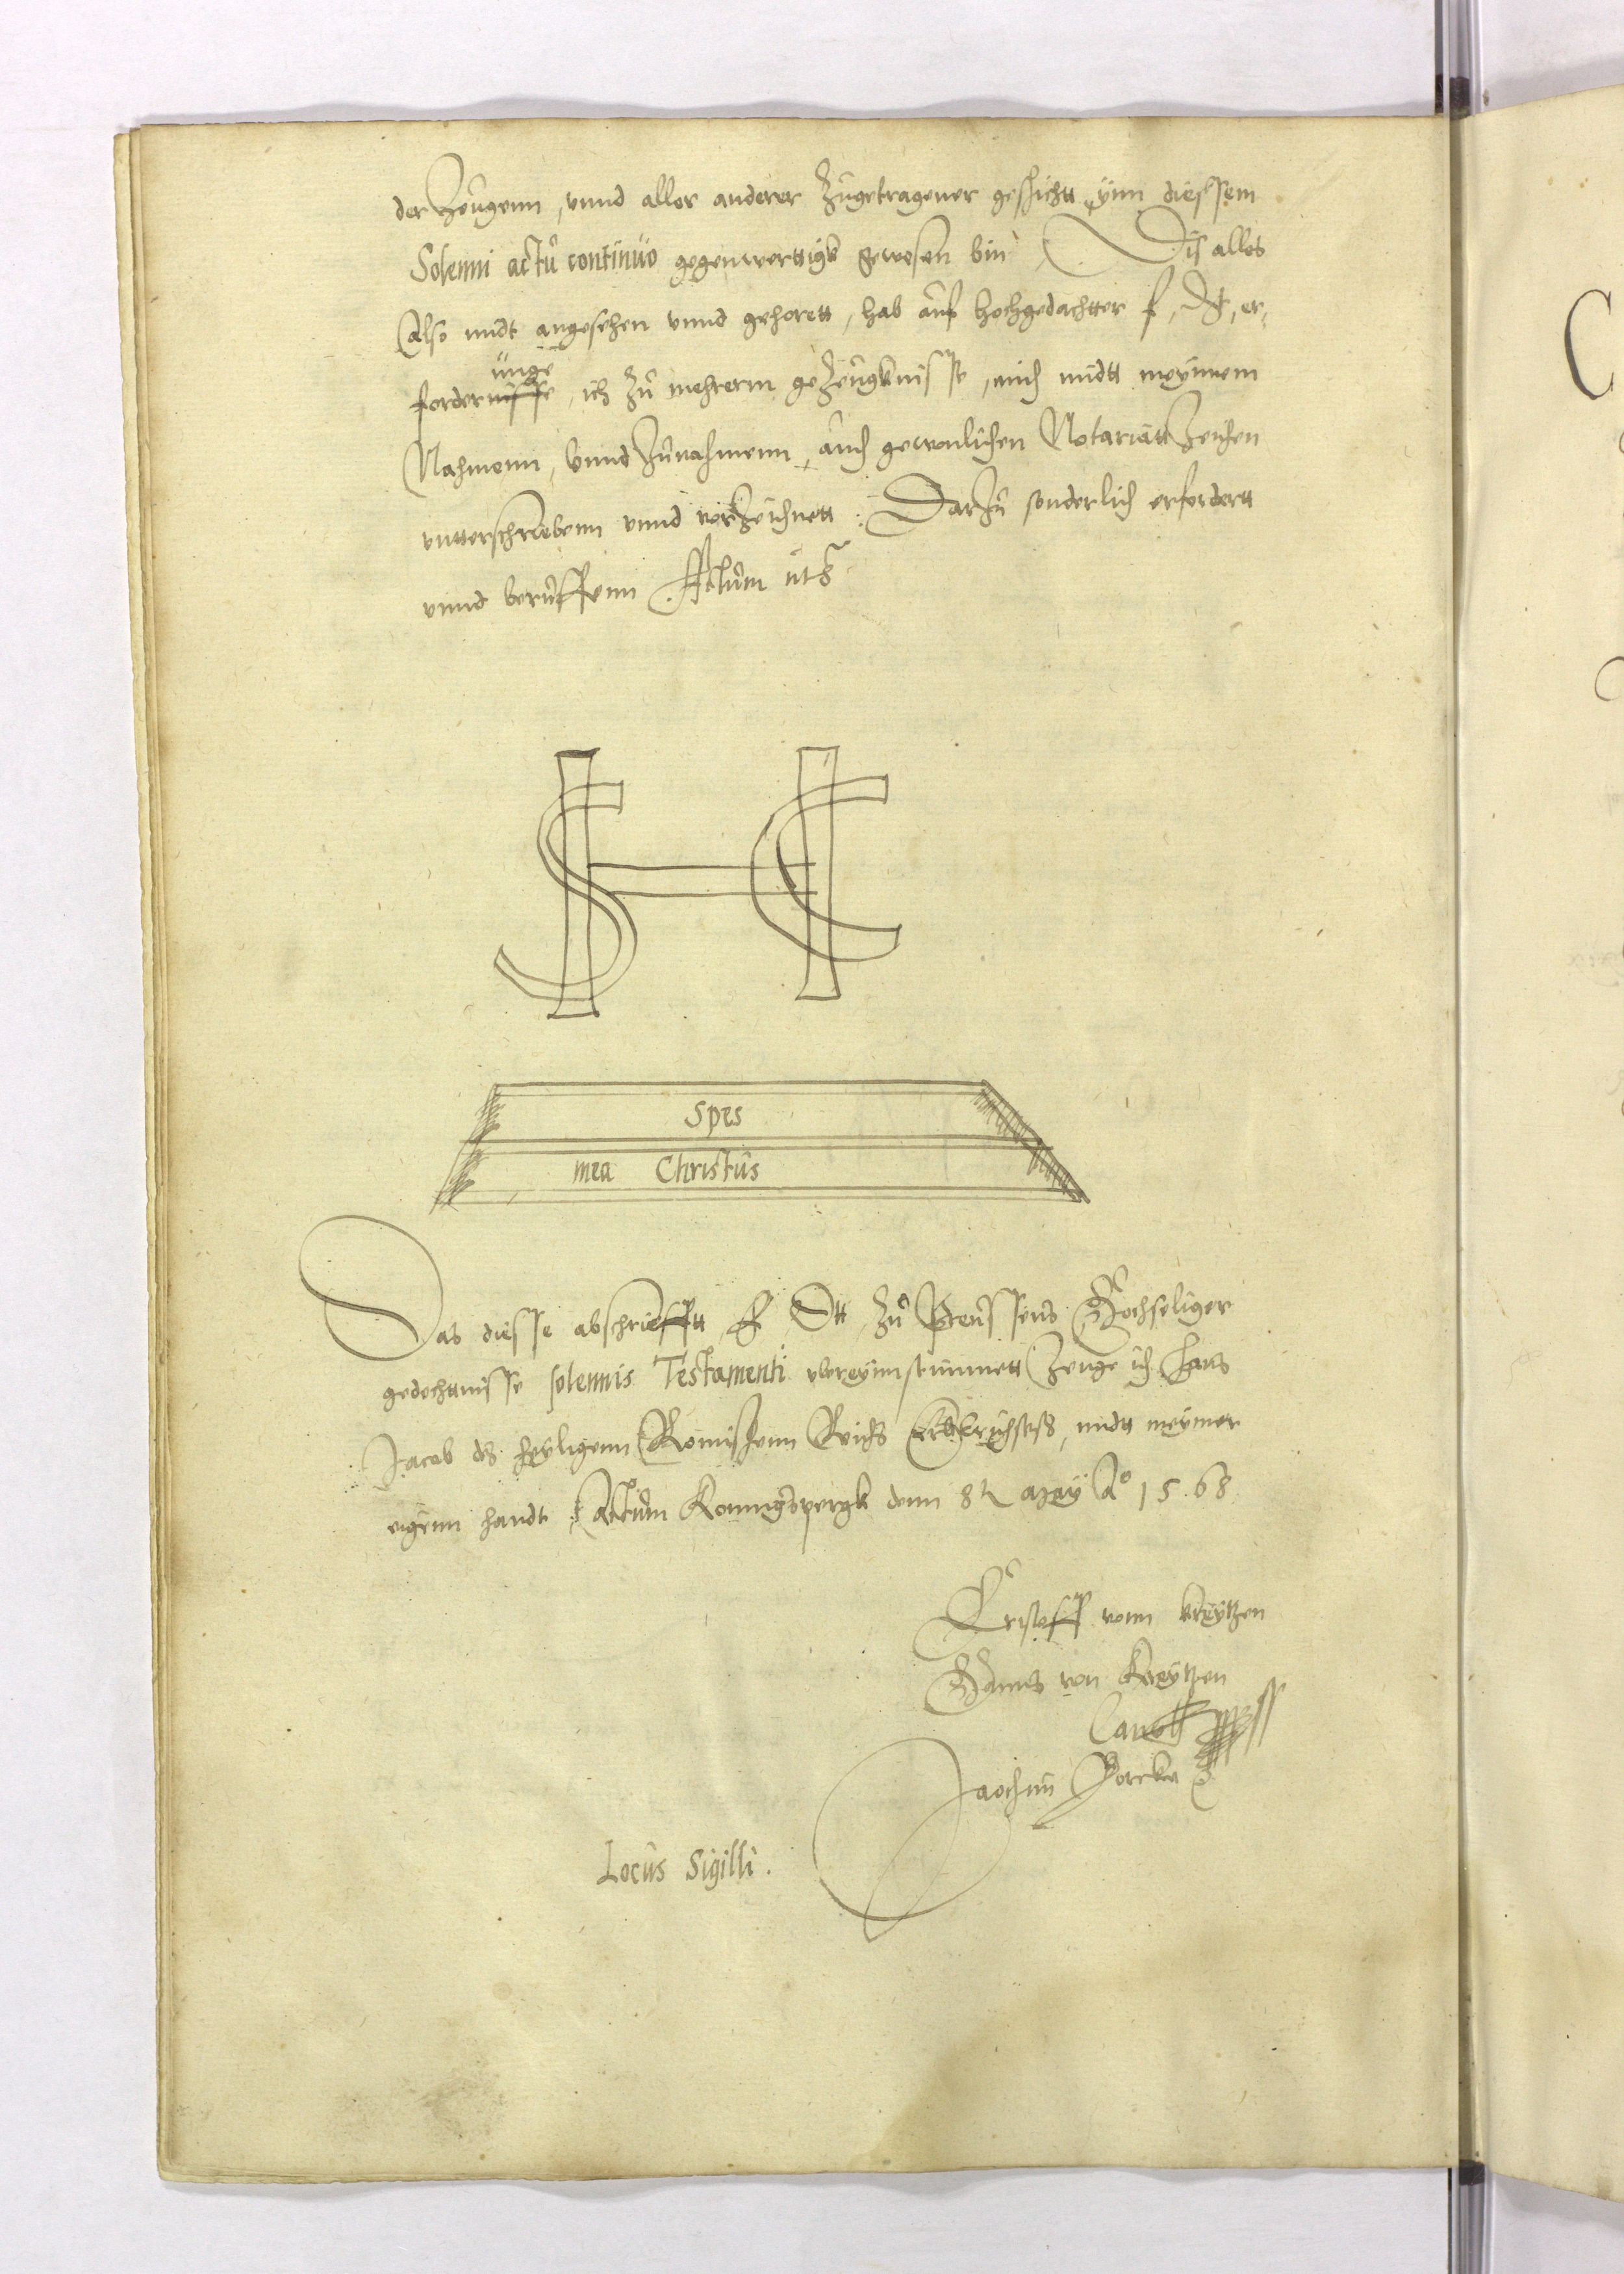 der Zeugenn, vnnd aller anderer Zugetragener geschicht, ynn diessem
Solenni actu continuo gegenwertigk gewesen bin, Dis alles
Also midt angesehen vnnd gehorett, hab auf hochgedachtter f, Dt, er,
fordernisse unge, ich zu mehrerm geZeugknisse, mich midtt meynnem
Nahmenn, vnnd Zunahmenn, auch gewonlichen Notariatt Zeichen
vntterschriebenn vnnd vorZeichnett: DarZu sonderlich erfordertt
vnnd beruffenn Actum uts
SHC
Spes
mea Christus
Das diesse abschriefftt, F Dtt, Zu Preussens Hochseliger
gedechtnisse solennis Testamenti vbreynnstimmett Zeuge ich Hans
Jacob des heyligenn Romischenn Reichs, midtt meyner
eigenn handt Actum Konnigspergk denn 8t May Ao 1568
Cristoff vonn kreytzen
Hanns von Kreytzen
Cantz
Jaochim Borcke
Locus Sigilli.